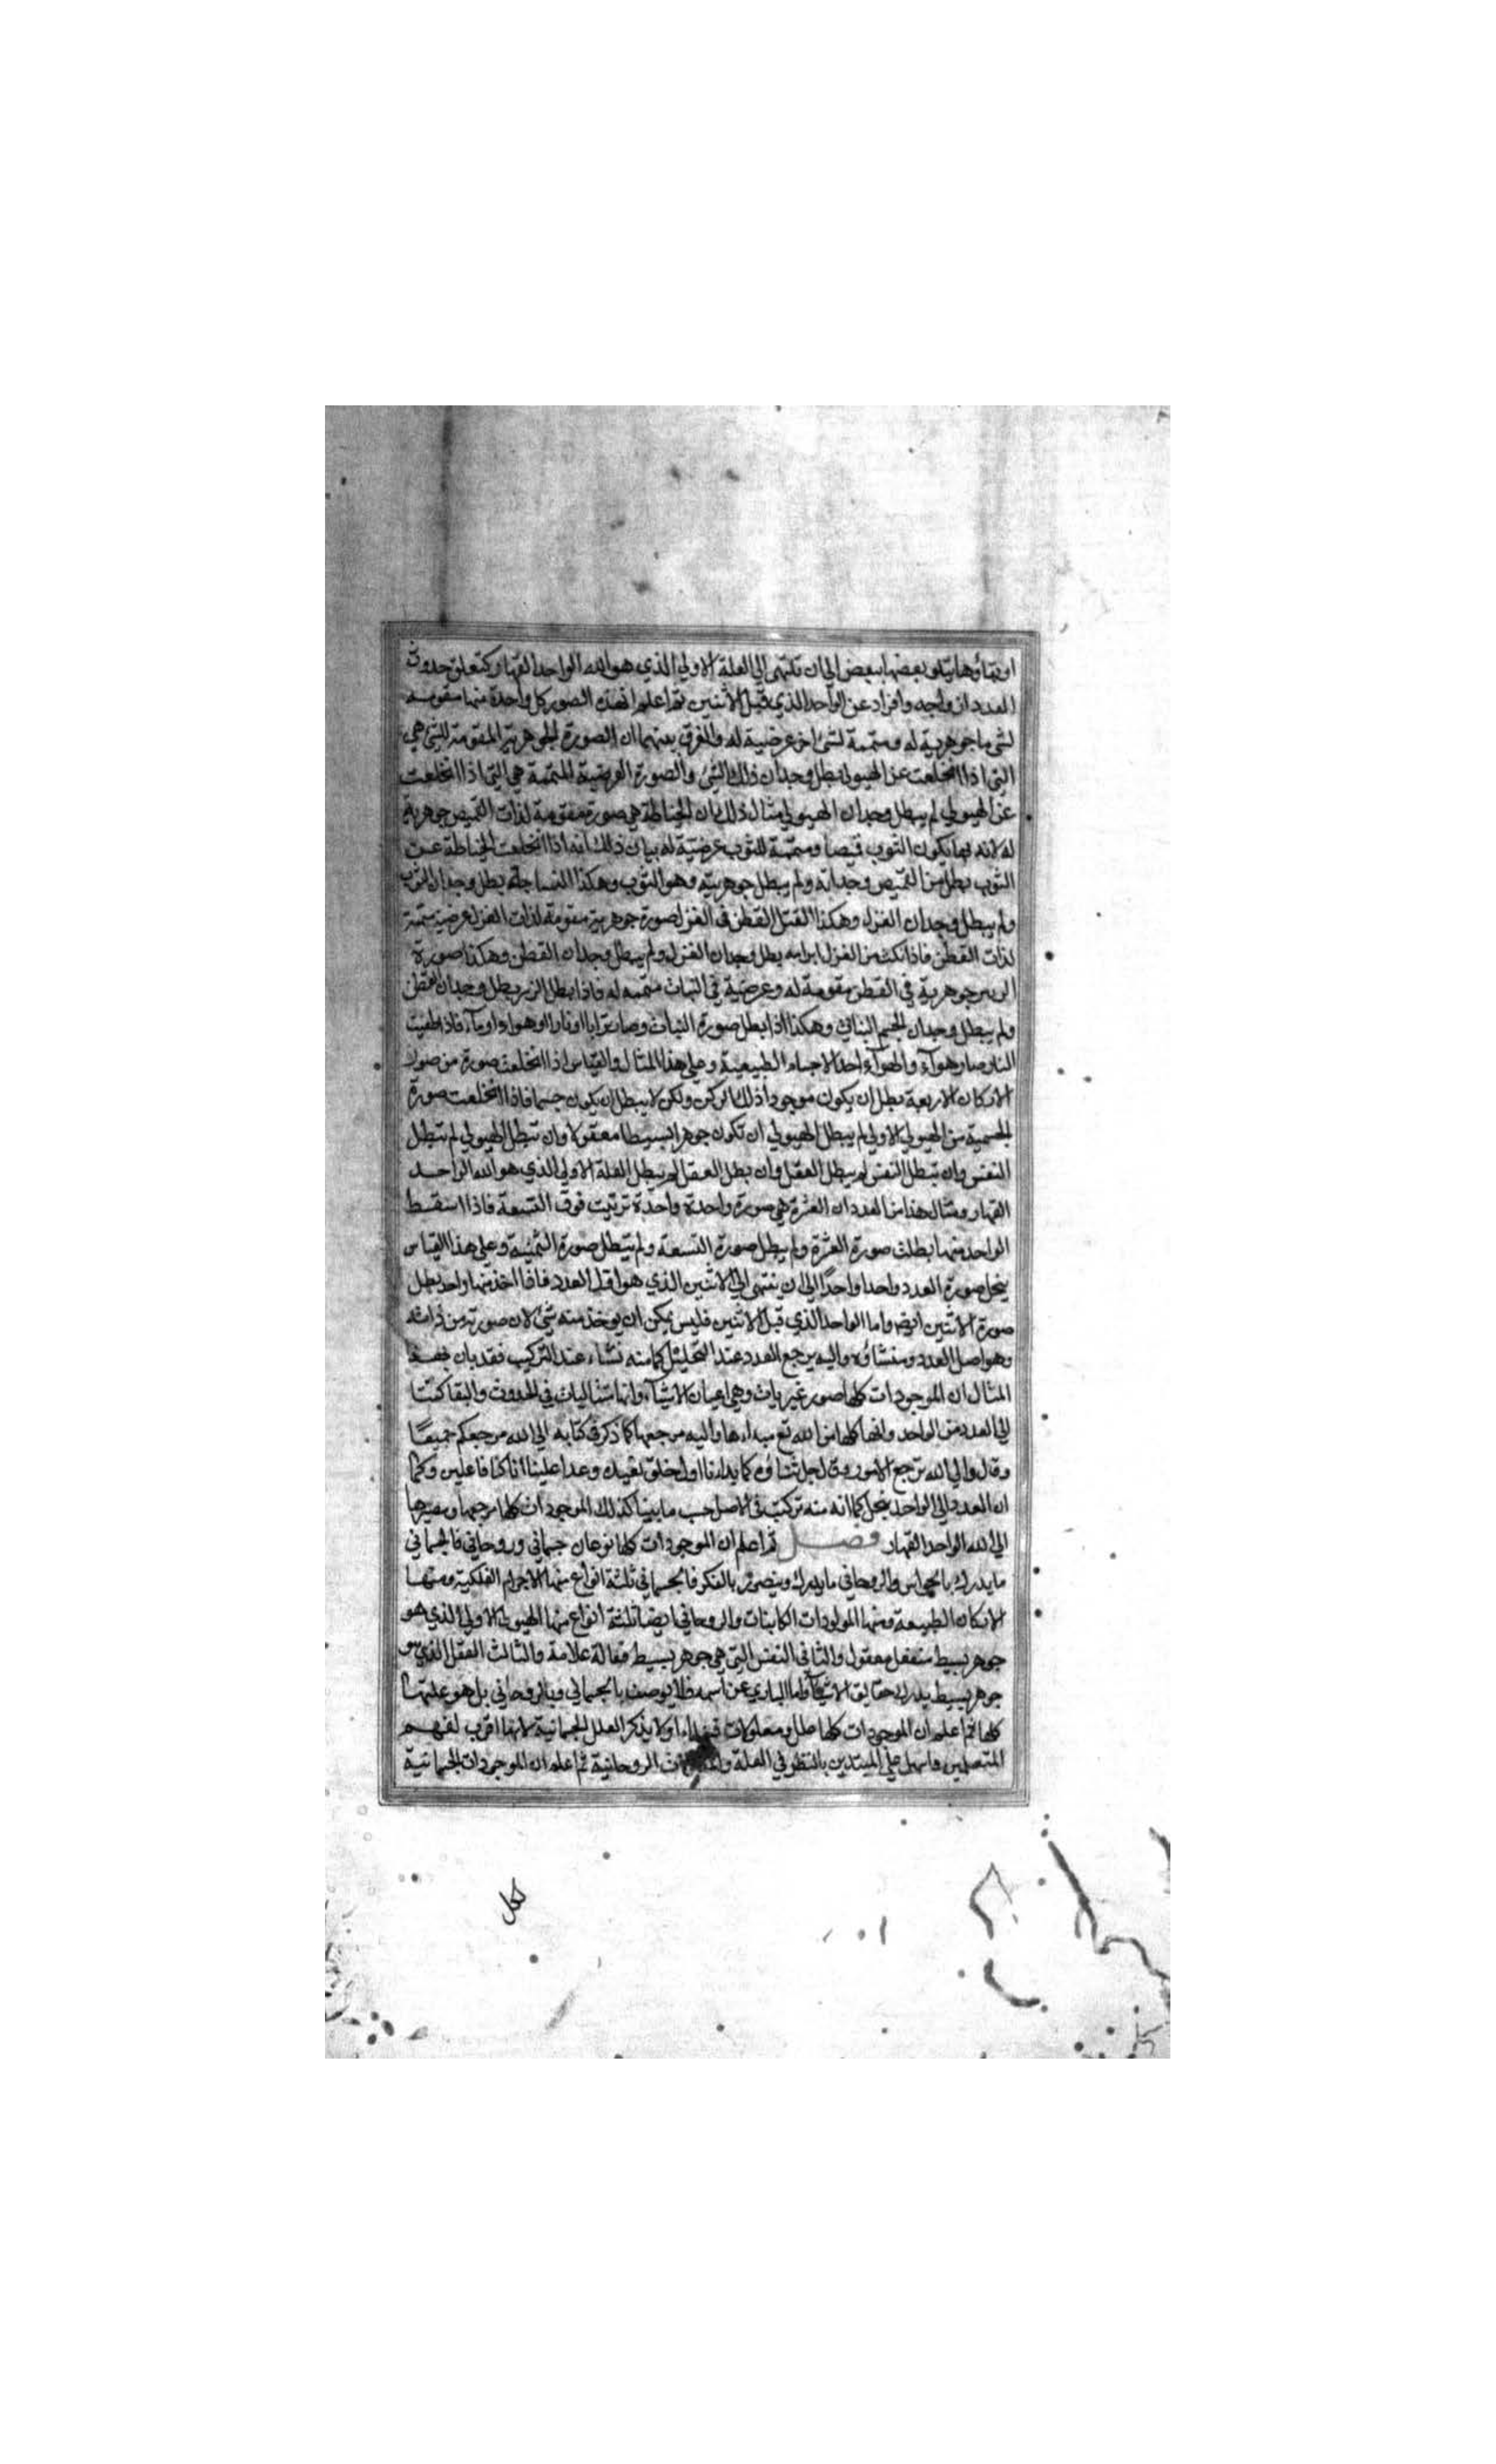 او بقاؤها يتلو بعضها ببعض الي ان تنتهي الي العلة الاولي الذي هو الله الواحد القهار كتعلق حدوث
العدد ازواجه وافراد عن الواحد الذي قبل الاثنين ثم اعلم ان هذه الصور كل واحدة منها مقومه
لشي ما جوهرية له ومتممة لشئ اخر عرضية له والفرق بينهما ان الصورة الجوهرية المقومة للشئ هي
التي اذا انخلعت عن الهيولي بطل وجدان ذلك الشئ والصورة العرضية المتممة هي التي اذا انخلعت
عن الهيولي لم يبطل وجدان الهيولي مثال ذلك بان الخياطة هي صورة مقومة لذات القميص جوهرية
له لانه بها يكون الثوب قميصا ومتممة للثوب عرضية له بيان ذلك انه اذا انخلعت الخياطة عن
الثوب بطل من القميص وجدانه ولم يبطل جوهريته وهو الثوب وهكذا النساجة بطل وجدان الثوب
ولم يبطل وجدان الغزل وهكذا الفتل القطن في الغزل صورة جوهرية مقومة لذات الغزل عرضية متممة
لذات القطن فاذا نكث من الغزل ابرامه بطل وجدان الغزل ولم يبطل وجدان القطن وهكذا صورة
الزيبر جوهرية في القطن مقومة له وعرضية في النبات متممه له فاذا بطل الزيبر بطل وجدان القطن
ولم يبطل وجدان الجسم النباتي وهكذا اذا بطل صورة النبات وصار ترابا او نارا او هواء او مآء فاذا طفيت
النار صار هوآء والهوآء احد الاجسام الطبيعية وعلي هذا المثال والقياس اذا انخلعت صورة من صور
الاركان الاربعة بطل ان يكون موجودا ذلك الركن ولكن لا يبطل ان يكون جسما فاذا انخلعت صورة
الجسمية من الهيولي الاولي لم يبطل الهيولي ان تكون جوهرا بسيطا معقولا وان تبطل الهيولي لم تبطل
النفس وان تبطل النفس لم يبطل العقل وان بطل العقل لم يبطل العلة الاولي الذي هو الله الواحد
القهار ومثال هذا من العدد ان العشرة هي صورة واحدة واحدة ترتبت فوق التسعة فاذا اسقط
الواحد منها بطلت صورة العشرة ولم يبطل صورة التسعة ولم تبطل صورة الثمنية وعلي هذا القياس
ينحل صورة العدد واحدا واحدًا الي ان ينتهي الي الاثنين الذي هو اول العدد فاذا اخذ منها واحد بطل
صورة الاثنين ايضا واما الواحد الذي قبل الاثنين فليس يمكن ان يوخذ منه شئ لان صورته من ذاته
وهو اصل العدد ومنشاؤه واليه يرجع العدد عند التحليل كما منه نشاء عند التركيب فقد بان بهذا
المثال ان الموجودات كلها صور غيريات وهي اعيان الاشيآء وانها متتاليات في الحدوث والبقا كتتا
لي العدد من الواحد وانها كلها من الله تع مبداءها واليه مرجعها كما ذكر في كتابه الي الله مرجعكم جميعًا
وقال والي الله ترجع الامور وقال جل ثناؤه كما بدانا اول خلق نعيده وعدا علينا انا كنا فاعلين وكما
ان العدد الي الواحد ينحل كما انه منه تركبت في الاصل حسب ما بينا كذلك الموجودات كلها مرجعها ومصيرها
الي الله الواحد القهار فصل ثم اعلم ان الموجودات كلها نوعان جسماني وروحاني فالجسماني
ما يدرك بالحواس والروحاني ما يدرك ويتصور بالفكر فالجسماني ثلثة انواع منها الاجرام الفلكية ومنها
الاركان الطبيعه ومنها المولودات الكاينات والروحاني ايضا ثلثة انواع منها الهيولي الاولي الذي هو
جوهر بسيط منفعل معقول والثاني النفس التي هي جوهر بسيط فعالة علامة والثالث العقل الذي هو
جوهر بسيط يدرك حقايق الاشيآء واما الباري عن اسمه فلا يوصف بالجسماني ولا بالروحاني بل هو علتها
كلها ثم اعلم ان الموجودات كلها علل ومعلولات اولا بذكر العلل الجسمانية لانها اقرب لفهم
المتعلمين واسهل علي المبتدين بالنظر في العلة الروحانية ثم اعلم ان الموجودات الجسمانية